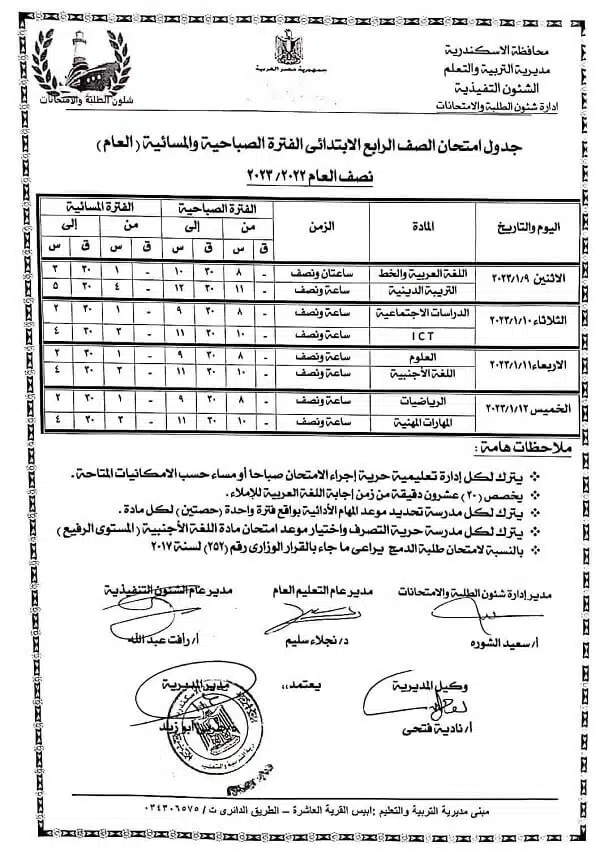 محافظة الاسكندرية
مديرية التربية والتعلم
الشئون التنفيذية
إدارة شئون الطلبة والامتحانات
جمهورية مصر العربية
شئون الطلبة والامتحانات
جدول امتحان الصف الرابع الابتدائى الفترة الصباحية والمسائية (العام)
نصف العام ٢٠٢٣/٢٠٢٢
اليوم والتاريخ المادة الزمن الفترة الصباحية الفترة المسائية
من إلى من إلى
ق س ق س ق س ق س
الاثنين ٢٠٢٣/١/٩ اللغة العربية والخط ساعتان ونصف - ٨ ٣٠ ١٠ - ١ ٣٠ ٣
التربية الدينية ساعة ونصف - ١١ ٣٠ ١٢ - ٤ ٣٠ ٥
الثلاثاء ٢٠٢٣/١/١٠ الدراسات الاجتماعية ساعة ونصف - ٨ ٣٠ ٩ - ١ ٣٠ ٢
ICT ساعة ونصف - ١٠ ٣٠ ١١ - ٣ ٣٠ ٤
الاربعاء ٢٠٢٣/١/١١ العلوم ساعة ونصف - ٨ ٣٠ ٩ - ١ ٣٠ ٢
اللغة الأجنبية ساعة ونصف - ١٠ ٣٠ ١١ - ٣ ٣٠ ٤
الخميس ٢٠٢٣/١/١٢ الرياضيات ساعة ونصف - ٨ ٣٠ ٩ - ١ ٣٠ ٢
المهارات المهنية ساعة ونصف - ١٠ ٣٠ ١١ - ٣ ٣٠ ٤
ملاحظات هامة:
يترك لكل إدارة تعليمية حرية إجراء الامتحان صباحا أو مساء حسب الامكانيات المتاحة.
يخصص (٢٠) عشرون دقيقة من زمن إجابة اللغة العربية للإملاء.
يترك لكل مدرسة تحديد موعد المهام الأدائية بواقع فترة واحدة (حصتين) لكل مادة.
يترك لكل مدرسة حرية التصرف واختيار موعد امتحان مادة اللغة الأجنبية (المستوى الرفيع)
بالنسبة لامتحان طلبة الدمج يراعى ما جاء بالقرار الوزارى رقم (٢٥٢) لسنة ٢٠١٧
مدير إدارة شئون الطلبة والامتحانات مدير عام التعليم العام مدير عام الشئون التنفيذية
أ/ سعيد الشوره د/ نجلاء سليم أ/ رافت عبد الله
وكيل المديرية يعتمد،، مدير المديرية
أ/ نادية فتحى أبو زيد
مبنى مديرية التربية والتعليم : ابيس القرية العاشرة – الطريق الدائرى ت / ٠٣٤٣٠٦٥٧٥